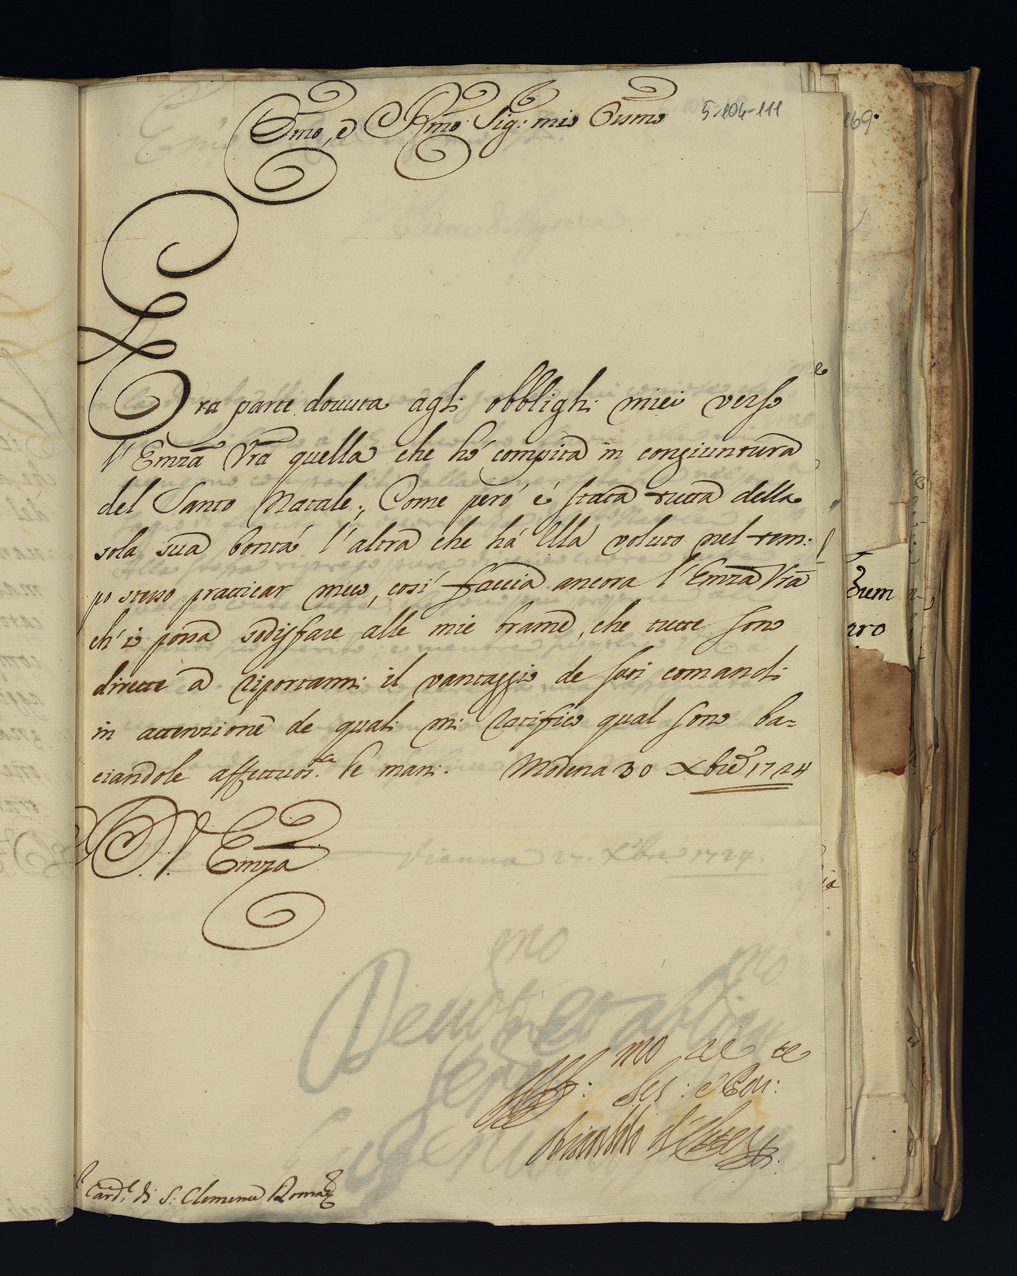 Emo, e Rmo Sig: mio Ossmo
5-104-111
169.
Era parte dovuta agli obblighi miei verso
l'Emza Vra quella che hò compita in congiuntura
del Santo Natale; Come però è stata tutta della
sola sua bontà l'altra che hà Ella voluto nel tem:
po stesso practicar meco, così faccia ancora l'Emza Vra
ch'io possa sodisfare alle mie brame, che tutte sono
dirette à riportarmi il vantaggio de suoi comandi
in attenzione de quali mi ratifico qual sono ba-
ciandole affettuos.te le mani. Modena 30 Xbre 1724
D. V. Emza
Vienna 27. Xbre 1724.
Aff: mo
Ser: e Con:
Rinaldo d'Este
Card.l di S: Clemente Roma